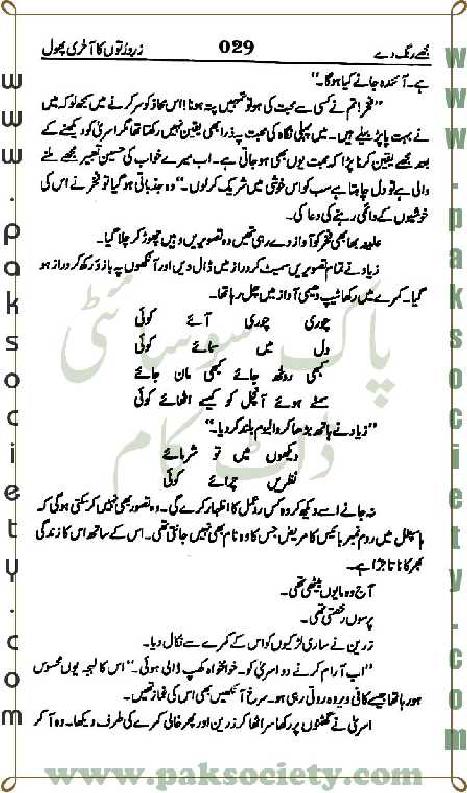 مجھے رنگ دے
029
زرد رتوں کا آخری پھول
ہے۔ آئندہ جانے کیا ہوگا۔"
"فخر! تم نے کسی سے محبت کی ہو تو تمہیں پتہ ہونا! اس محاذ کو سر کرنے میں سمجھ لو کہ میں
نے بہت پاپڑ بیلے ہیں۔ میں پہلی نگاہ کی محبت پہ ذرا بھی یقین نہیں رکھتا تھا مگر اسریٰ کو دیکھنے کے
بعد مجھے یقین کرنا پڑا کہ محبت یوں بھی ہو جاتی ہے۔ اب میرے خواب کی حسین تعبیر مجھے ملنے
والی ہے تو دل چاہتا ہے سب کو اس خوشی میں شریک کر لوں۔" وہ جذباتی ہو گیا تو فخر نے اس کی
خوشیوں کے دائمی رہنے کی دعا کی۔
علینہ بھابھی فخر کو آواز دے رہی تھیں وہ تصویریں وہیں چھوڑ کر چلا گیا۔
زیاد نے تمام تصویریں سمیٹ کر دراز میں ڈال دیں اور آنکھوں پہ بازو رکھ کر دراز ہو
گیا۔ کمرے میں رکھا ٹیپ دھیمی آواز میں چل رہا تھا۔
چوری چوری آئے کوئی
دل میں سمائے کوئی
کبھی روٹھ جائے کبھی مان جائے
ہوئے آنچل کو کیسے اٹھائے کوئی
"زیاد نے ہاتھ بڑھا کر والیوم بلند کر دیا۔"
دیکھوں میں تو شرمائے
نظریں چرائے کوئی
نہ جانے اسے دیکھ کر وہ کس ردعمل کا اظہار کرے گی۔ وہ تصور بھی نہیں کر سکتی ہوگی کہ
ہاسپٹل میں روم نمبر بائیس کا مریض جس کا وہ نام بھی نہیں جانتی تھی۔ اس کے ساتھ اس کا زندگی
بھر کا ناتا جڑا ہے۔
آج وہ مایوں بیٹھی تھی۔
پرسوں رخصتی تھی۔
زرین نے ساری لڑکیوں کو اس کے کمرے سے نکال دیا۔
"اب آرام کرنے دو اسریٰ کو۔ خوامخواہ کھپ ڈالی ہوئی۔" اس کا لہجہ یوں محسوس
ہو رہا تھا جیسے کافی دیر وہ روتی رہی ہو۔ سرخ آنکھیں بھی اس کی غماز تھیں۔
اسریٰ نے گھٹنوں پر رکھا سر اٹھا کر زرین اور پھر خالی کمرے کی طرف دیکھا۔ وہ آ کر
پاک سوسائٹی
ڈاٹ کام
www.paksociety.com
www.paksociety.com
www.paksociety.com